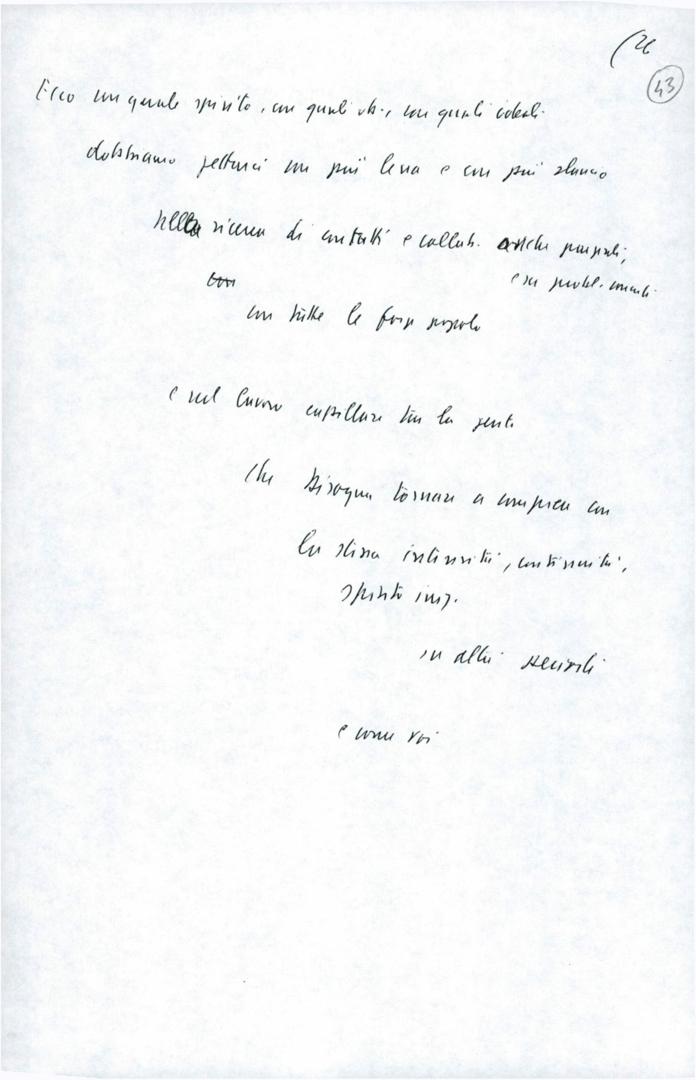 (26
43
Ecco con quale spirito, con quali ob., con quali ideali
dobbiamo gettarci con più lena e con più slancio
nella ricerca di contatti e collab. anche parziali,
con
e su probl. concreti
con tutte le forze popola
e nel lavoro capillare tra la gente
che bisogna tornare a compiere con
la stessa intensità, continuità,
spirito
in altri
e come voi